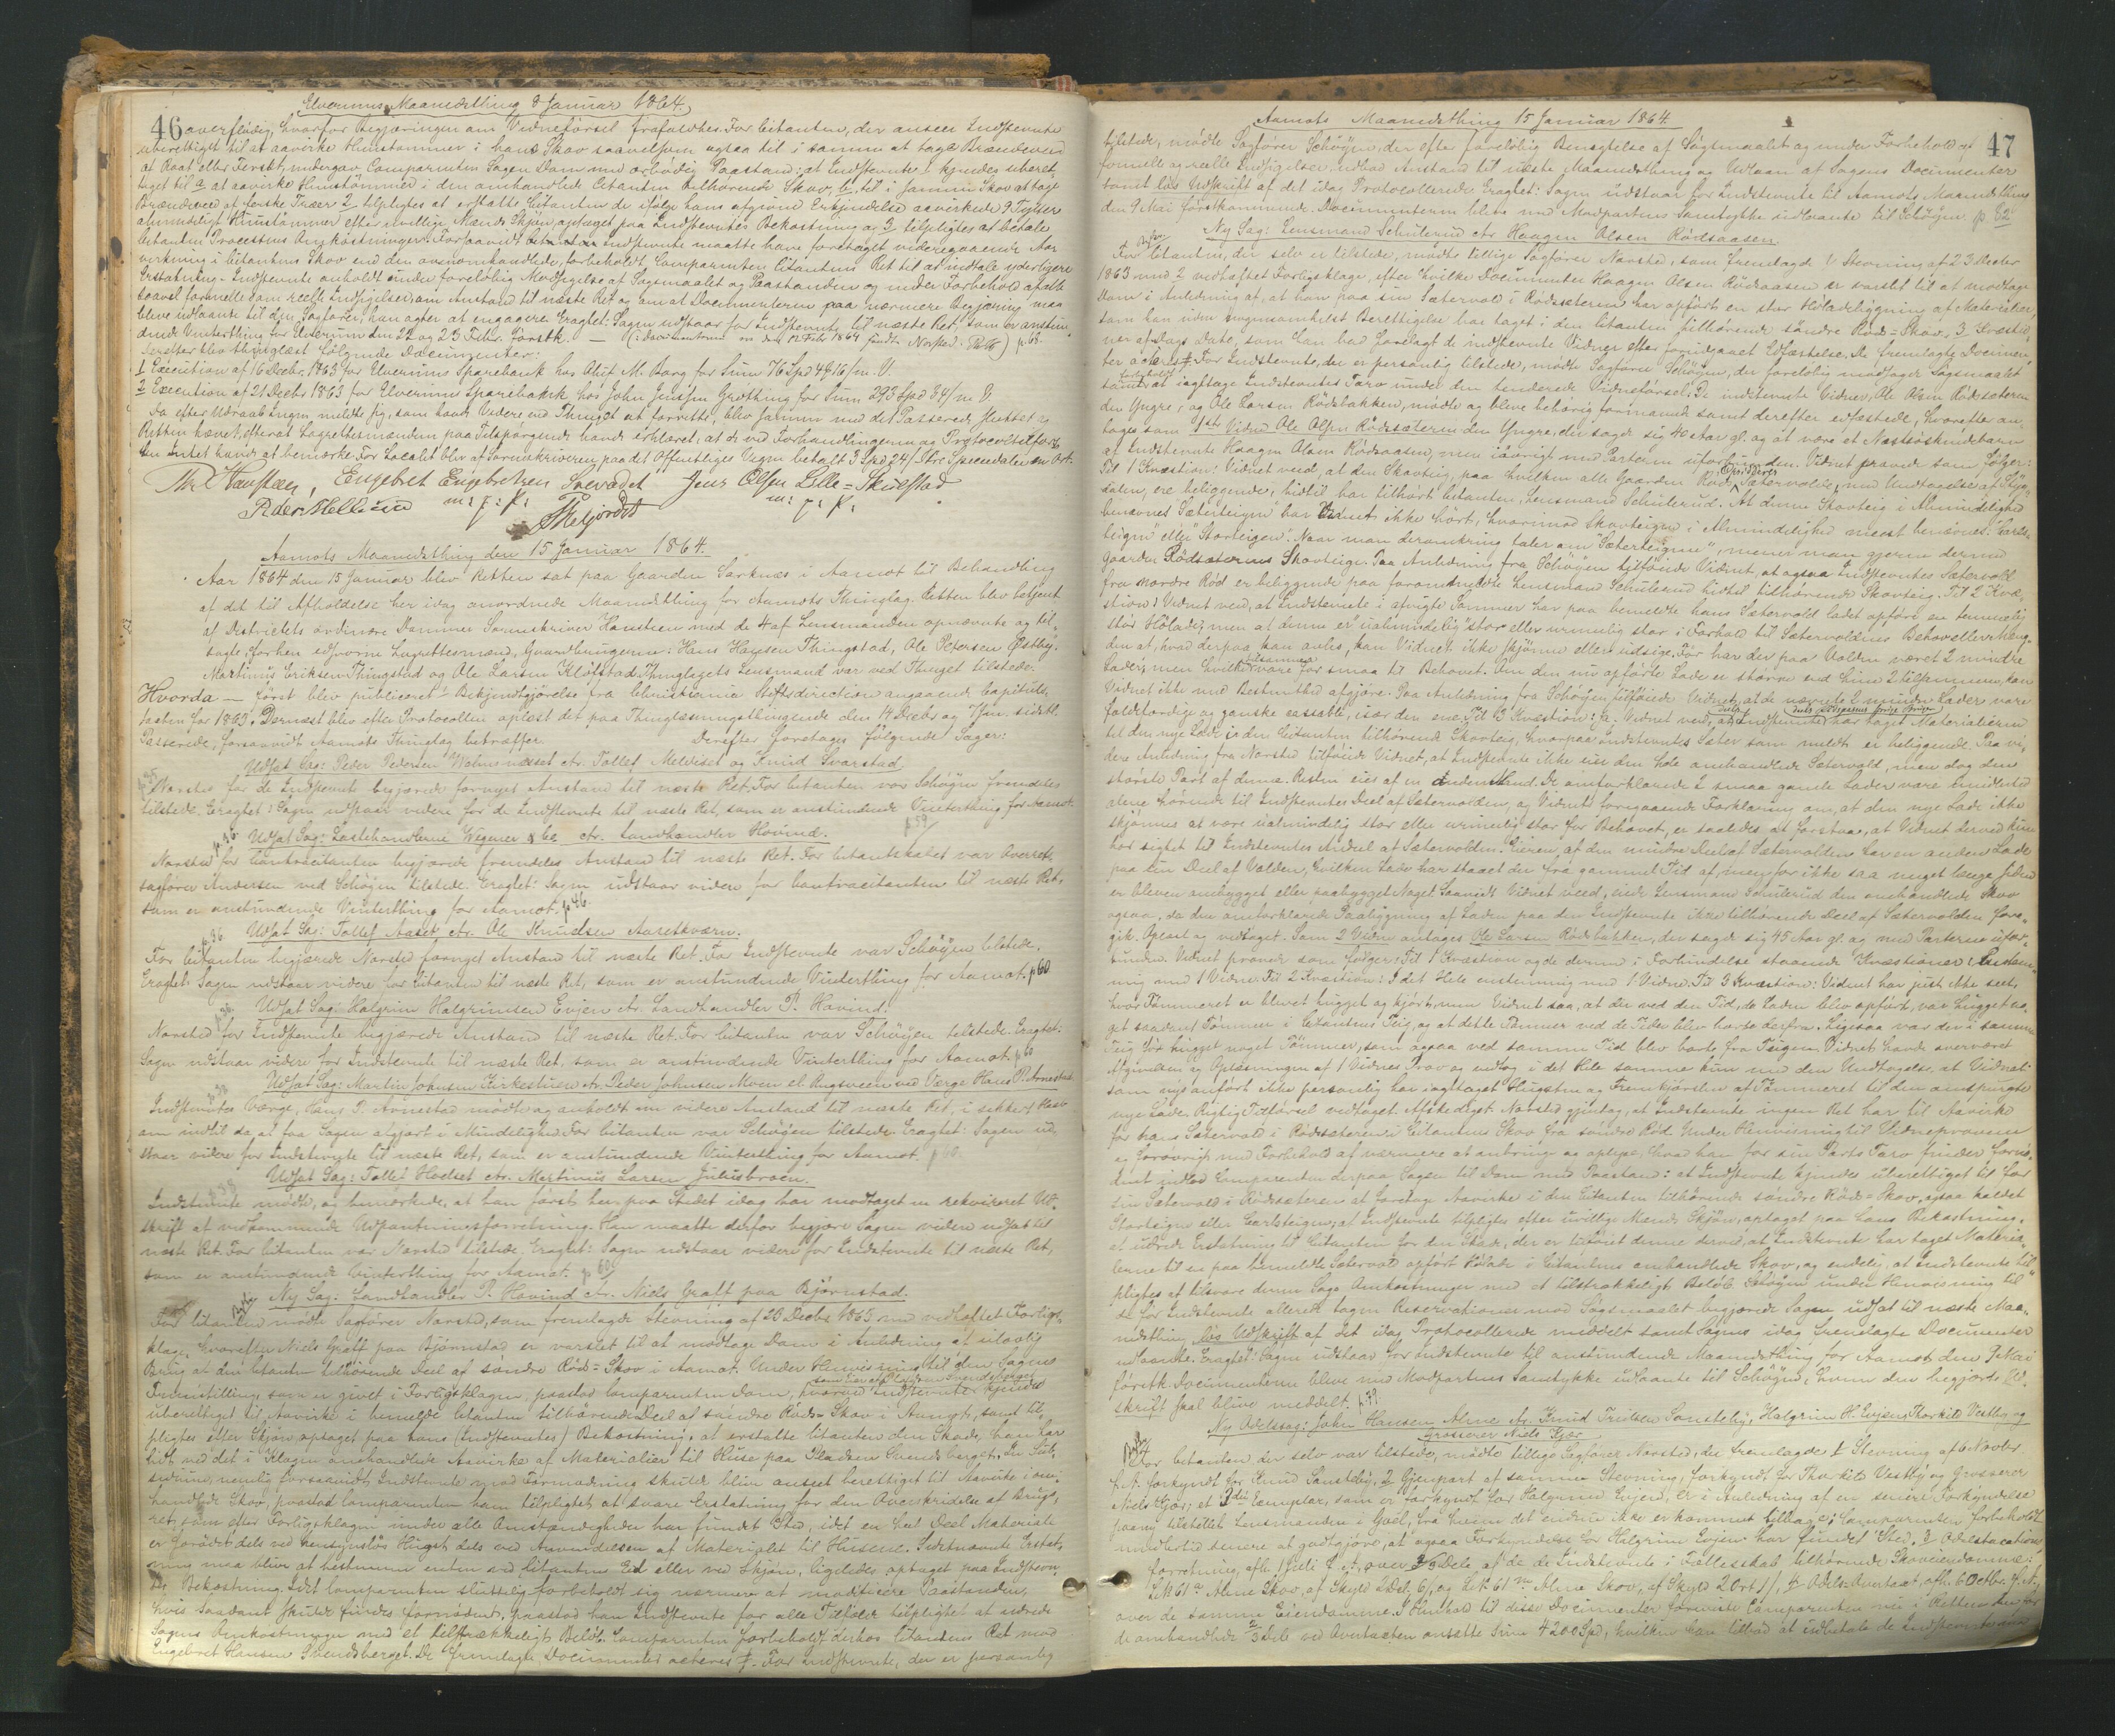 Elverums Maanedsthing 8 Januar 1864.
46 overflödig, hvorfor Begjæringen om Vidneförsel frafaldtes. For Citanten, der anseer Indstevnte
uberettiget til at aavirke Huustømmer i hans Skov saavelsom ogsaa til i samme at tage Brændeved
at Raat eller Ferskt, undergav Comparenten Sagen Dom med ærbødig Paastand: at Indstevnte 1 kjendes uberet,
tiget til a at aavirke Huustømmer i den omhandlede Citanten tilhørende Skov, b, til i samme Skov at tage
Brændeved af ferske Træer 2 tilpligtes at erstatte Citanten de ifølge hans afgivne Erkjendelse aavirkede 9 Tylter
almindeligt Huustømmer efter uvillige Mænds Skjøn, optaget paa Indstevntes Bekostning og 3 tilpligtes at betale
Citanten Processens Omkostninger. Forsaavidt Indstevnte maatte have foretaget videregaaende Aa,
virkning i Citantens Skov end den ovenomhandlede, forbeholdt Comparenten Citantens Ret til at indtale yderligere
Erstatning. Indstevnte anholdt under foreløbig Modsigelse af Søgsmaalet og Paastanden og under Forbehold af alle
saavel formelle som reelle Indsigelser om Anstand til næste Ret og om at Documenterne paa nærmere Begjæring maa
blive udlaante til den Sagfører, han agter at engagere. Eragtet: Sagen udstaar for Indstevnte til næste Ret, som er anstun,
dende Vinterthing for Elverum den 22 og 23 Febr. førstk. — (: Documenterne den 12 Febr 1864 sendt Norsted: ) p. 68.
Derefter blev thinglæst følgende Documenter:
1 Execution af 16 Decbr. 1863 for Elverums Sparebank hos Alit M. Borg for Sum 76 Spd 4 16/ m. V.
2 Execution af 21 Decbr 1863 for Elverums Sparebank hos John Jenssen Grøthing for Sum 293 Spd 34/ m V.
Da efter Udraab Ingen meldte sig, som havde Videre ved Thinget at forrette, blev samme med det Passerede sluttet og
Retten hævet, efterat Lagrettesmændene paa Tilspørgende havde erklæret, at de ved Forhandlingerne og Protocoltilfør,
slen Intet havde at bemærke. For Localet blev af Sorenskriveren paa det Offentliges Vegne betalt 3 Spd 24/ tre Speciedaler en Ort.
Th: Hanssteen, Engebret Engebretsen Sorvadet Jens Olsen Lille=Skulstad
Peder Mellum m: f: P: m: f: P:
Aamots Maanedsthing den 15 Januar 1864.
Aar 1864 den 15 Januar blev Retten sat paa Gaarden Sorknæs i Aamot til Behandling
af det til Afholdelse her idag anordnede Maanedsthing for Aamots Thinglag. Retten blev betjent
af Districtets ordinære Dommer Sorenskriver Hansteen med de 4 af Lensmanden opnævnte og til,
sagte, forhen edsvorne Lagrettesmænd, Gaardbrugerne: Hans Hansen Thingstad, Ole Petersen Østby,
Martinus Eriksen Thingstad og Ole Larsen Kløfstad. Thinglagets Lensmand var ved Thinget tilstede.
Hvorda — først blev publiceret 1 Bekjendtgjørelse fra Christiania Stiftsdirection angaaende Capitels,
taxten for 1863. Dernæst blev efter Protocollen oplæst det paa Thinglæsningsthingende den 14 Decbr og 7 Jan. sidstl.
Passerede, forsaavidt Aamots Thinglag betræffer. Derefter foretoges følgende Sager:
Udsat Sag: Peder Pedersen Holmsnæsset ctr. Tollef Meldiset og Knud Svarstad.
Norsted for de Indstevnte begjærede fornyet Anstand til næste Ret. For Citanten var Schøgen fremdeles
tilstede. Eragtet: Sagen udstaar videre for de Indstevnte til næste Ret, som er anstundende Vinterthing for Aamot.
p. 59
Udsat Sag: Lastehandlerne Wegener & Co ctr. Landhandler Hovind.
Norsted for Contracitanten begjærede fremdeles Anstand til næste Ret. For Citantskabet var Overrets,
sagfører Andersen ved Schøgen tilstede. Eragtet: Sagen udstaar videre for Contracitanten til næste Ret,
som er anstundende Vinterthing for Aamot.
Udsat Sag: Tollef Aaset ctr. Ole Knudsen Aasetkværn.
For Citanten begjærede Norsted fornyet Anstand til næste Ret. For Indstevnte var Schøyen tilstede.
Eragtet: Sagen udstaar videre for Citanten til næste Ret, som er anstundende Vinterthing for Aamot. p 60
Udsat Sag: Halgrim Halgrimsen Evjen ctr. Landhandler P. Hovind.
Norsted for Indstevnte begjærede Anstand til næste Ret. For Citanten var Schøyen tilstede. Eragtet:
Sagen udstaar videre for Indstevnte til næste Ret, som er anstundende Vinterthing for Aamot. p 60
Udsat Sag: Martin Johnsen Kirkestuen ctr. Peder Johnsen Moen el. Rugsveen ved Verge Hans P. Arnestad
Indstevntes Værge, Hans P. Arnestad mødte og anholdt om videre Anstand til næste Ret, i sikkert Haab
om indtil da, at faa Sagen afgjort i Mindelighed. For Citanten var Schøgen tilstede. Eragtet: Sagen ud,
staar videre for Indstevnte til næste Ret, som er anstundende Vinterthing for Aamot. p 60.
Udsat Sag: Tollef Hovdset ctr. Martinus Larsen Juliusbroen.
Indstevnte mødte, og bemærkede, at han først her paa Stedet idag har modtaget en rekvireret Ud,
skrift af vedkommende Udpantningsforretning. Han maatte derfor begjære Sagen videre udsat til
næste Ret. For Citanten var Norsted tilstede. Eragtet: Sagen udstaar videre for Indstevnte til næste Ret,
som er anstundende Vinterthing for Aamot. p 60/
Ny Sag: Landhandler P. Hovind ctr. Niels Graff paa Bjørnstad.
For Citanten mødte Sagfører Norsted, som fremlagde Stevning af 23 Decbr 1863 med vedhæftet Forligs,
klage, hvorefter Niels Graff paa Bjørnstad er varslet til at modtage Dom i Anledning af ulovlig
Brug at den Citanten tilhørende Deel af søndre Rød=Skov i Aamot. Under Henvisning til den Sagens
Fremstilling, som er givet i Forligsklagen, paastod Comparenten Dom, hvorved Indstevnte kjendes
uberettiget til Aavirke i bemeldte Citanten tilhørende Deel af søndre Rød=Skov i Aamot, samt til,
pligtes efter Skjøn, optaget paa hans (Indstevntes) Bekostning, at erstatte Citanten den Skade, han har
lidt ved det i Klagen omhandlede Aavirke af Materialier til Huse paa Pladsen Svendsberget. In sub,
sidium, nemlig forsaavidt Indstevnte mod Formodning skulde blive anseet berettiget til Aavirke i om,
handlede Skov, paastod Comparenten ham tilpligtet at svare Erstatning for den Overskridelse af Brugs,
ret, som efter Forligsklagen under alle Omstændigheder har fundet Sted, idet en heel Deel Materiale
er forødt dels ved hensynsløs Hugst dels ved Anvendelsen af Materialet til Husene. Sidstnævnte Erstat,
ning maa blive at bestemme enten ved Citantens Ed eller ved Skjøn, ligeledes optaget paa Indstevn,
tes Bekostning. Idet Comparenten sluttelig forbeholdt sig nærmere at modificere Paastanden,
hvis Saadant skulde findes fornødent, paastod han Indstevnte for alle Tilfælde tilpligtet at udrede
Sagens Omkostninger med et tilstrækkeligt Beløb. Comparenten forbeholdt derhos Citantens Ret mod
Engebret Hansen Svendsberget. De fremlagte Documenter acteres ‡. For Indstevnte, der er personlig
Aamots Maanedsthing 15 Januar 1864.
47
tilstede, mødte Sagfører Schöyen, der efter foreløbig Benægtelse af Søgsmaalet og under Forbehold af
formelle og reelle Indsigelser, udbad Anstand til næste Maanedsthing og Udlaan af Sagens Documenter
samt løs Udskrift af det idag Protocollerede. Eragtet: Sagen udstaar for Indstevnte til Aamots Maanedsthing
den 9 Mai førstkommende. Documenterne bleve med Modpartens Samtykke udlaante til Schøyen. p. 82
Ny Sag: Lensmand Schulerud ctr. Haagen Olsen Rødsaasen.
For Citanten, der selv er tilstede, mødte tillige Sagfører Norsted, som fremlagde 1 Stevning af 23 Decbr
1863 med 2 vedhæftet Forligsklage, efter hvilke Documenter Haagen Olsen Rødsaasen er varslet til at modtage
Dom i Anledning af, at han paa sin Sætervold i Rødsæteren har opført en stor Høladebygning af Materialier,
som han uden nogensomhelst Berettigelse har taget i den Citanten tilhørende søndre Rød=Skov. 3 Kvæstio,
ner af Dags Dato, som han bad forelagt de indstevnte Vidner efter forudgaaet Edfæstelse. De fremlagte Documen,
ter acteres ‡. For Indstevnte, der er personlig tilstede, mødte Sagfører Schöyen, der foreløbig modsagde Søgsmaalet
samt at iagttage Indstevntes Tarv under den tenderede Vidneførsel. De indstevnte Vidner, Ole Olsen Rødsæteren
den Yngre, og Ole Larsen Rødsbakken, mødte og bleve behørig formanede samt derefter edfæstede, hvorefter an,
toges som 1ste Vidne Ole Olsen Rødsæteren den Yngre, der sagde sig 40 Aar gl. og at være et Næstsøskendebarn
af Indstevnte Haagen Olsen Rødsaasen, men iøvrigt med Parterne uforbunden. Vidnet prøvede som følger:
Til 1 Kvæstion: Vidnet veed, at den Skovteig, paa hvilken alle Gaarden Røds Sætervolde, med Undtagelse af Styg,
dalen, ere beliggende, hidtil har tilhørt Citanten, Lensmand Schulerud. At denne Skovteig i Almindelighed
benævnes Sæterteigen har Vidnet ikke hørt, hvorimod Skovteigen i Almindelighed meest benævnes "Carls,
teigen" eller "Storteigen". Naar man deromkring taler om "Sæterteigen", mener man gjerne dermed
Gaarden Rødsæterens Skovteig. Paa Anledning fra Schöyen tilføiede Vidnet, at ogsaa Indstevntes Sætervold
fra nordre Rød er beliggende paa foromhandlede Lensmand Schulerud hidtil tilhørende Skovteig. Til 2 Kvæ,
stion: Vidnet veed, at Indstevnte i afvigte Sommer har paa bemeldte hans Sætervold ladet opføre en temmelig
stor Hølade; men at denne er "ualmindelig" stor eller urimelig stor i Forhold til Sætervoldens Behov eller Mæng,
den af, hvad derpaa kan avles, kan Vidnet ikke skjønne eller udsige. Før har der paa Volden været 2 mindre
Lader, men hvilke tilsammen vare for smaa til Behovet. Om den nu opførte Lade er større end hine 2 tilsammen, kan
Vidnet ikke med Bestemthed afgjøre. Paa Anledning fra Schöyen tilføiede Vidnet, at de nævnte 2 mindre Lader, vare
faldefærdige og ganske cassable, især den ene. Til 3 Kvæstion: Ja. Vidnet veed, at Indstevnte har taget Materialierne
til den nye Lade i den Citanten tilhørende Skovteig, hvorpaa Indstevntes Sæter som meldt er beliggende. Paa vi,
dere Anledning fra Norsted tilføiede Vidnet, at Indstevnte ikke eier den hele omhandlede Sætervold, men dog den
største Part af denne. Resten eies af en anden Mand. De omforklarede 2 smaa gamle Lader vare imidlertid
alene hørende til Indstevntes Deel af Sætervolden, og Vidnets foregaaende Forklaring om, at den nye Lade ikke
skjønnes at være ualmindelig stor eller urimelig stor for Behovet, er saaledes at forstaa, at Vidnet derved kun
har sigtet til Indstevntes Andeel af Sætervolden. Eieren af den mindre Deel af Sætervolden har en anden Lade
paa sin Deel af Volden, hvilken Lade har staaet der fra gammel Tid af, men for ikke saa meget længe siden
er bleven ombygget eller paabygget Noget. Saavidt Vidnet veed, eiede Lensmand Schulerud den omhandlede Skov
ogsaa, da den omforklarede Paabygning af Laden paa den Indstevnte ikke tilhørende Deel af Sætervolden fore,
gik. Oplæst og vedtaget. Som 2 Vidne antoges Ole Larsen Rødsbakken, der sagde sig 45 Aar gl. og med Parterne ufor,
bunden. Vidnet prøvede som følger: Til 1 Kvæstion og de dermed i Forbindelse staaende Kvæstioner: Enstem,
mig med 1 Vidne. Til 2 Kvæstion: I det Hele enstemmig med 1 Vidne. Til 3 Kvæstion: Vidnet har just ikke seet,
hvor Tømmeret er blevet hugget og kjørt, men Vidnet saa, at der ved den Tid, da Laden blev opført, var hugget no,
get saadant Tømmer i Citantens Teig, og at dette Tømmer ved de Tider blev borte derfra. Ligesaa var der i samme
Teig før hugget noget Tømmer, som ogsaa ved samme Tid blev borte fra Teigen. Vidnet havde overværet
Afgivelsen og Oplæsningen af 1 Vidnes Prov og endtog i det Hele samme kun med den Undtagelse, at Vidnet
som nys anført ikke personlig har iagttaget Hugsten og Fremkjørslen af Tømmeret til den omspurgte
nye Lade. Rigtig Tilførsel vedtaget. Afskediget. Norsted gjentog, at Indstevnte ingen Ret har til Aavirke
for hans Sætervold i Rødsæteren i Citantens Skov fra søndre Rød. Under Henvisning til Vidneprovene
og forøvrigt med Forbehold af nærmere at anbringe og oplyse, hvad han for sin Parts Tarv finder forn,
dent indlod Comparenten derpaa Sagen til Dom med Paastand: at Indstevnte kjendes uberettiget til for
sin Sætervold i Rødsæteren at foretage Aavirke i den Citanten tilhørende søndre Rød=Skov, ogsaa kaldet
Storteigen eller Carlsteigen, at Indstevnte tilpligtes efter uvillige Mænds Skjøn, optaget paa hans Bekostning,
at udrede Erstatning til Citanten for den Skade, der er tilføiet denne derved, at Indstevnte har taget Materia,
lierne til en paa bemeldte Sætervold opført Hølade i Citantens omhandlede Skov, og endelig, at Indstevnte til,
pligtes at tilsvare denne Sags Omkostninger med et tilstrækkeligt Beløb. Schöyen under Henvisning til
de for Indstevnte allerede tagne Reservationer mod Søgsmaalet begjærede Sagen udsat til næste Maa,
nedsthing, løs Udskrift af det idag Protocollerede meddelt samt Sagens idag fremlagte Documenter
udlaante. Eragtet: Sagen udstaar for Indstevnte til anstundende Maanedsthing for Aamot den 9 Mai
førstk. Documenterne bleve med Modpartens Samtykke udlaante til Schöyen, hvem den begjærte Ud,
skrift skal blive meddelt. p. 79
Ny Odelssag: John Hansen Alme ctr. Knud Troelsen Sønsteby, Halgrim H. Evjen, Thorkild Vestby og
Grosserer Niels Kjær
For Citanten der selv var tilstede, mødte tillige Sagfører Norsted, der fremlagde 1 Stevning af 6 Novbr
f. A. forkyndt for Knud Sønsteby, 2 Gjenpart af samme Stevning, forkyndt for Thorkild Vestby og Grosserer
Niels Kjær; et 3die Exemplar, som er forkyndt for Halgrim Evjen, er i Anledning af en senere Forkyndelse
paany tilstillet Lensmanden i Goel, fra hvem det endnu ikke er kommet tilbage; Comparenten forbeholdt
imidlertid senere at godtgjøre, at ogsaa Forkyndelse for Halgrim Evjen har fundet Sted. 3 Odelstaxations
forretning, afh. Juli f. A. over 2/3 Dele af de de Indstevnte i Fællesskab tilhørende Skoveiendomme:
L.№ 61 Alme Skov, af Skyld 2 Dlr. 6/, og L.№ 61 Alme Skov, af Skyld 2 Ort 1/, 4 Odels-Overtaxt, afh. 6 Octbr. f. A.
over de samme Eiendomme. I Henhold til disse Documenter fremviste Comparenten nu i Retten den for
de omhandlede 2/3 Dele ved Overtaxten ansatte Sum 4200 Spd, hvilken han tilbød at udbetale de Indstevnte mod